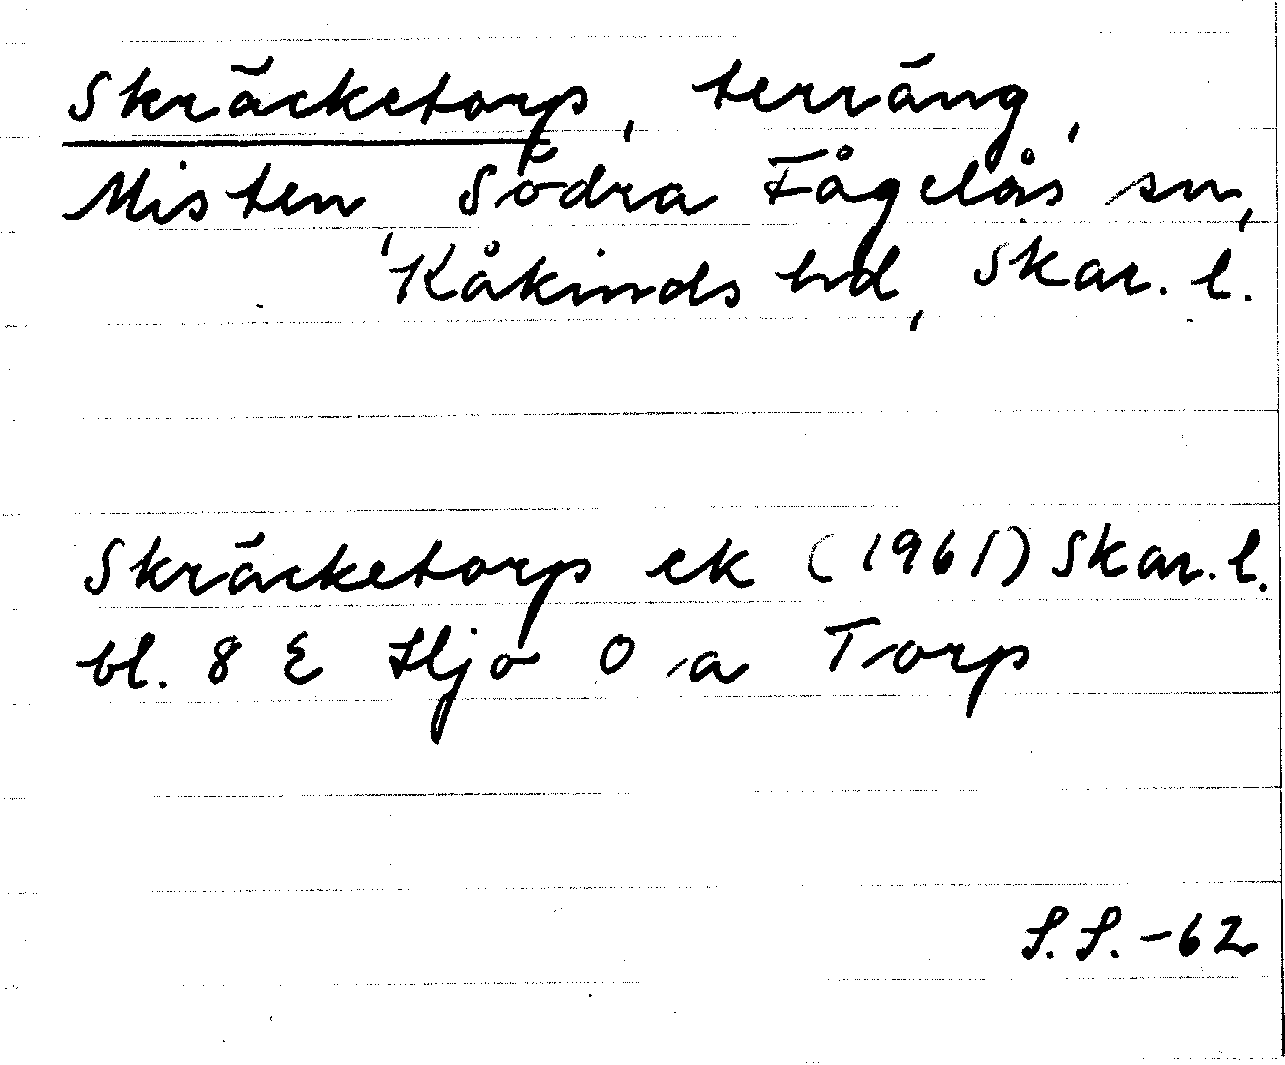 Skräcketorp, terräng,
Misten, Södra Fågelås sn,
Kåkinds hd, Skar. l.
Skräcketorp ek (1961) Skar. l.
bl. 8 E Hjo O a Torp
S.S. -62